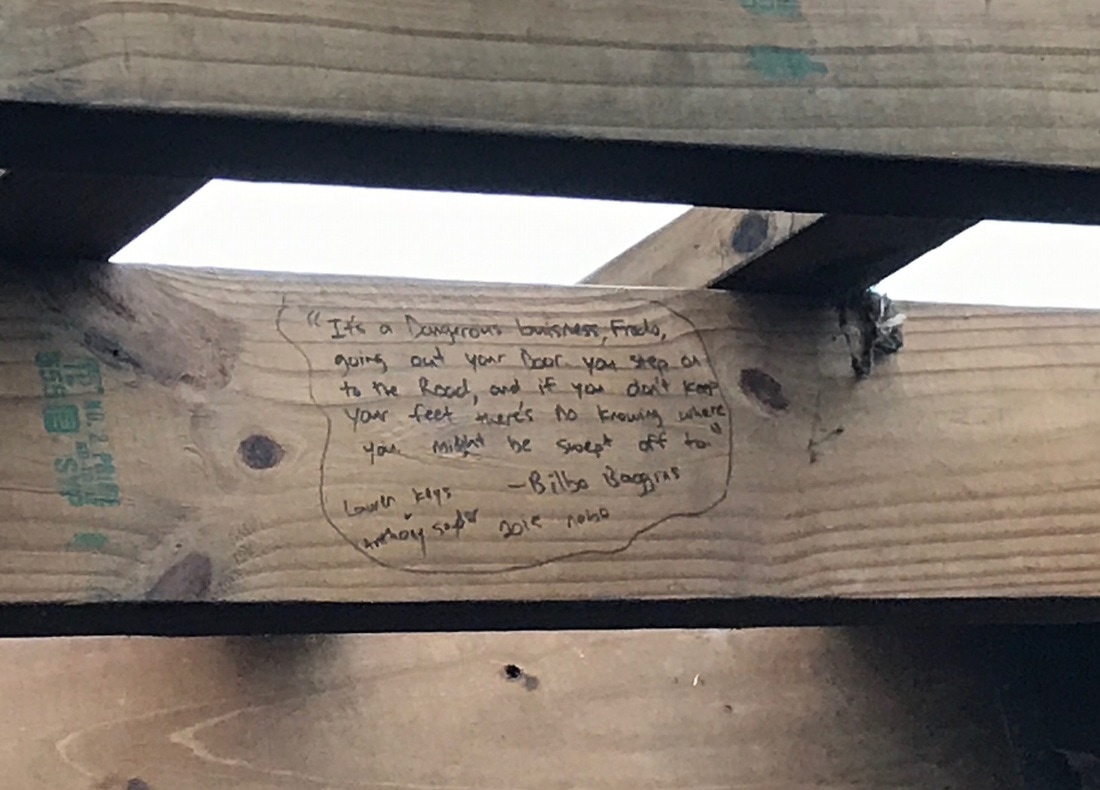 "It's a Dangerous buisness, Frodo,
going out your Door. you step on
to the Road, and if you don't keep
your feet there's no knowing where
you might be swept off to."
—Bilbo Baggins
Lauren keys
Anthony
NO. 2